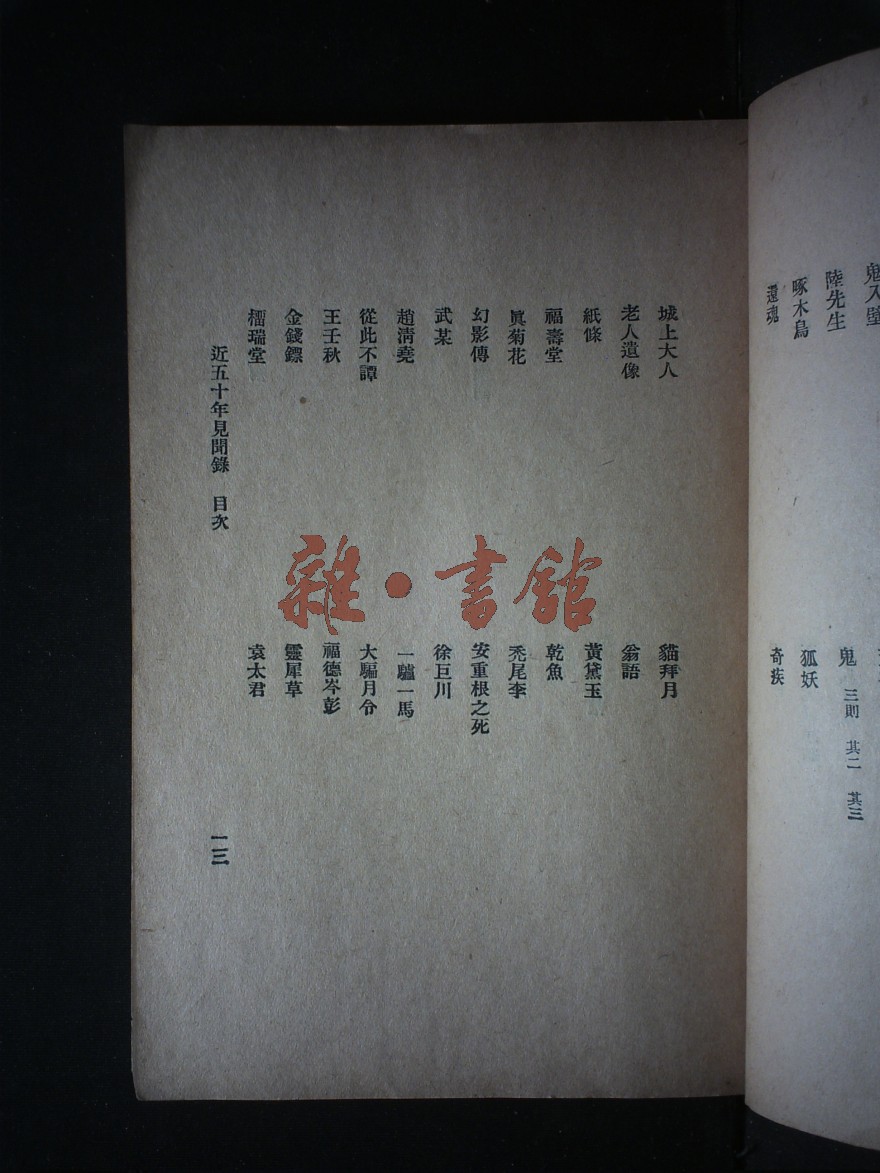 鬼入壁
陸先生
啄木鳥
還魂
鬼 三則 其二 其三
狐妖
奇疾
城上大人
老人遺像
紙條
福壽堂
眞菊花
幻影傳
武某
趙淸堯
從此不譚
王壬秋
金錢鏢
榴瑞堂
貓拜月
翁語
黃黛玉
乾魚
禿尾李
安重根之死
徐巨川
一驢一馬
大騙月令
福德岑彭
靈犀草
袁太君
近五十年見聞錄 目次
一三
雜・書館